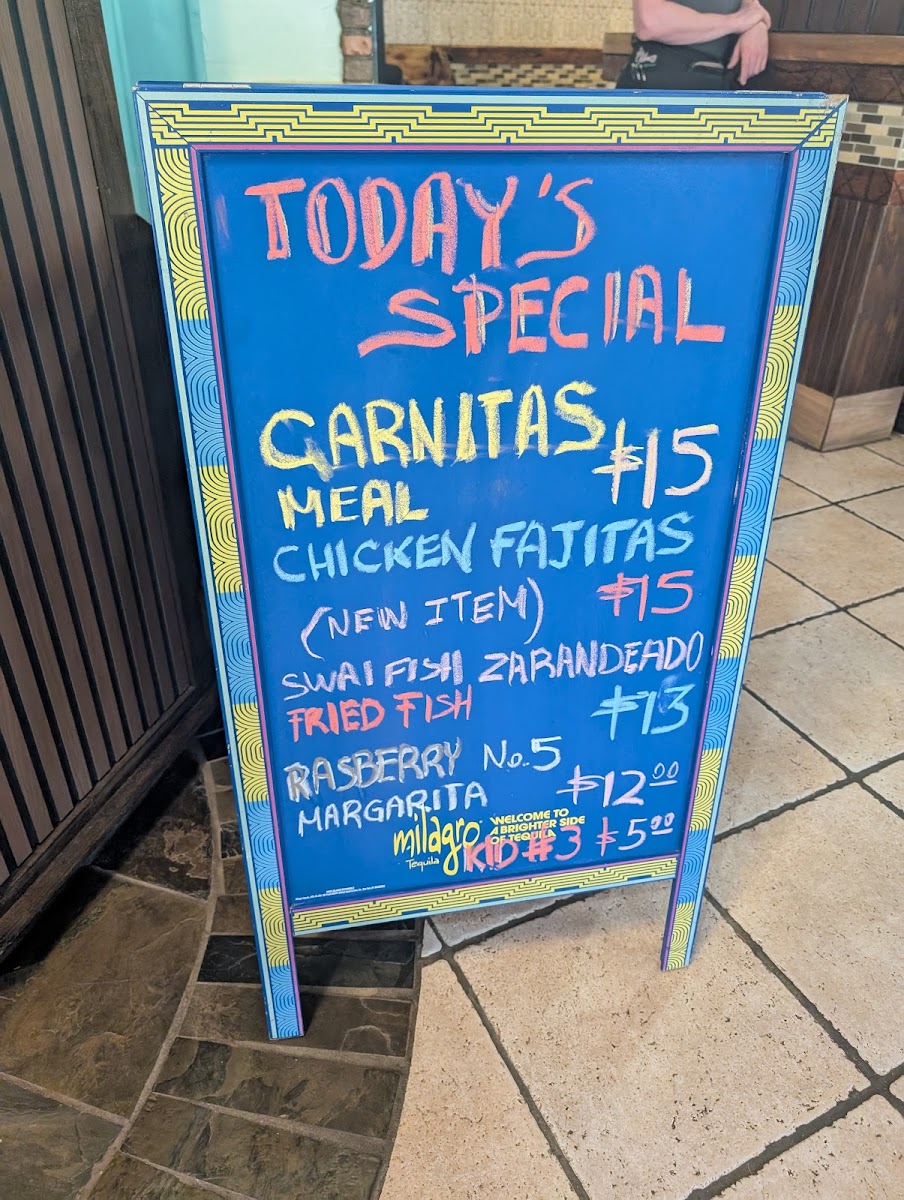 TODAY'S
SPECIAL
CARNITAS
$15
MEAL
CHICKEN FAJITAS
(NEW ITEM) $15
SWAI FISH ZARANDEADO
FRIED FISH $13
RASBERRY No. 5
MARGARITA $12.00
milagro
Tequila
WELCOME TO
A BRIGHTER SIDE
OF TEQUILA
KID #3 $5.00